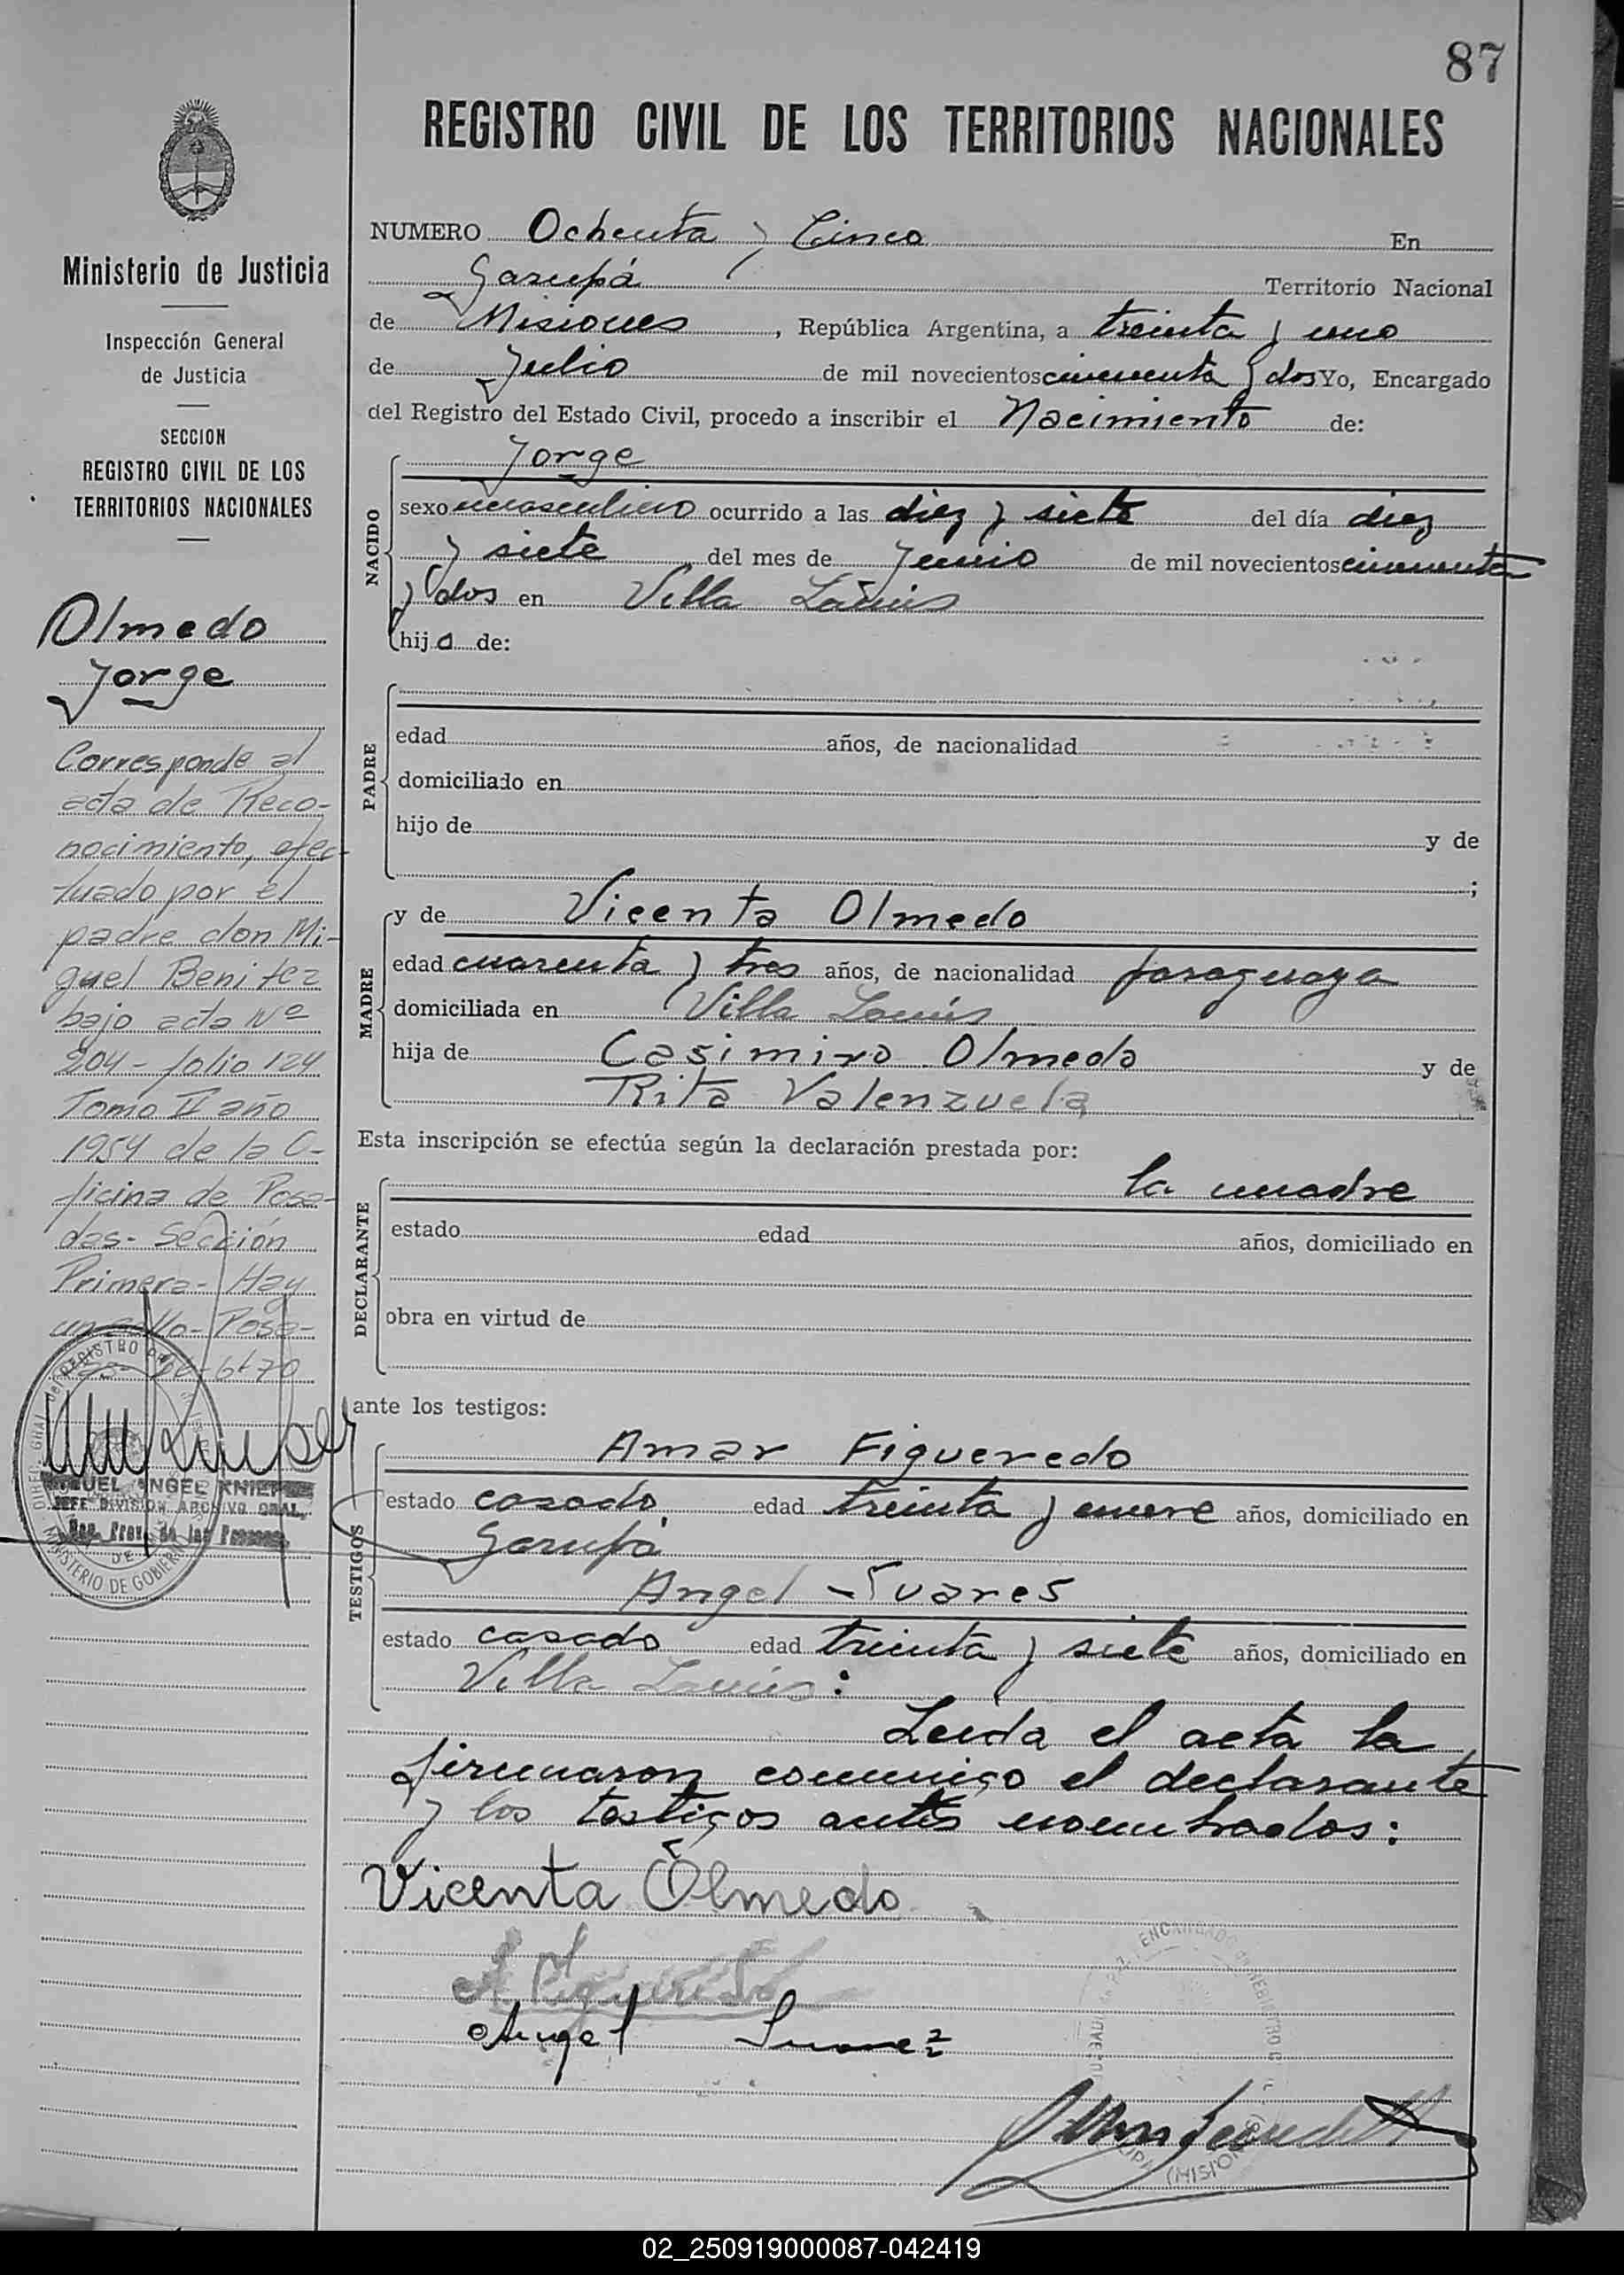 87
REGISTRO CIVIL DE LOS TERRITORIOS NACIONALES
NUMERO Ochenta y Cinco En
Garupá Territorio Nacional
de Misiones, República Argentina, a treinta y uno
de Julio de mil novecientos cincuenta y dos Yo, Encargado
del Registro del Estado Civil, procedo a inscribir el Nacimiento de:
NACIDO
Jorge
sexo masculino ocurrido a las diez y siete del día diez
y siete del mes de Junio de mil novecientos cincuenta
y dos en Villa Lanús
hijo de:
PADRE
edad años, de nacionalidad
domiciliado en
hijo de y de
;
MADRE
y de Vicenta Olmedo
edad cuarenta y tres años, de nacionalidad paraguaya
domiciliada en Villa Lanús
hija de Casimiro Olmedo y de
Rita Valenzuela
Esta inscripción se efectúa según la declaración prestada por:
DECLARANTE
la madre
estado edad años, domiciliado en
obra en virtud de
ante los testigos:
TESTIGOS
Amar Figueredo
estado casado edad treinta y nueve años, domiciliado en
Garupá
Angel Suares
estado casado edad treinta y siete años, domiciliado en
Villa Lanús:
Leida el acta la
firmaron conmigo el declarante
y los testigos antes nombrados:
Vicenta Olmedo
A Figueredo
Angel Suarez
ENCARGADO del REGISTRO C
(MISIONES)
Ministerio de Justicia
Inspección General
de Justicia
SECCION
REGISTRO CIVIL DE LOS
TERRITORIOS NACIONALES
Olmedo
Jorge
Corresponde al
acta de Reco-
nocimiento, efec-
tuado por el
padre don Mi-
guel Benitez
bajo acta Nº
204 - folio 124
Tomo II año
1954 de la O-
ficina de Posa-
das - Sección
Primera - Hay
un sello - Posa-
das -6-70
MIGUEL ANGEL KNIEP
JEFE DIVISION ARCHIVO GRAL.
Reg. Prov. de las Personas
DIREC. GRAL. del REGISTRO
MINISTERIO DE GOBIERNO
02_250919000087-042419